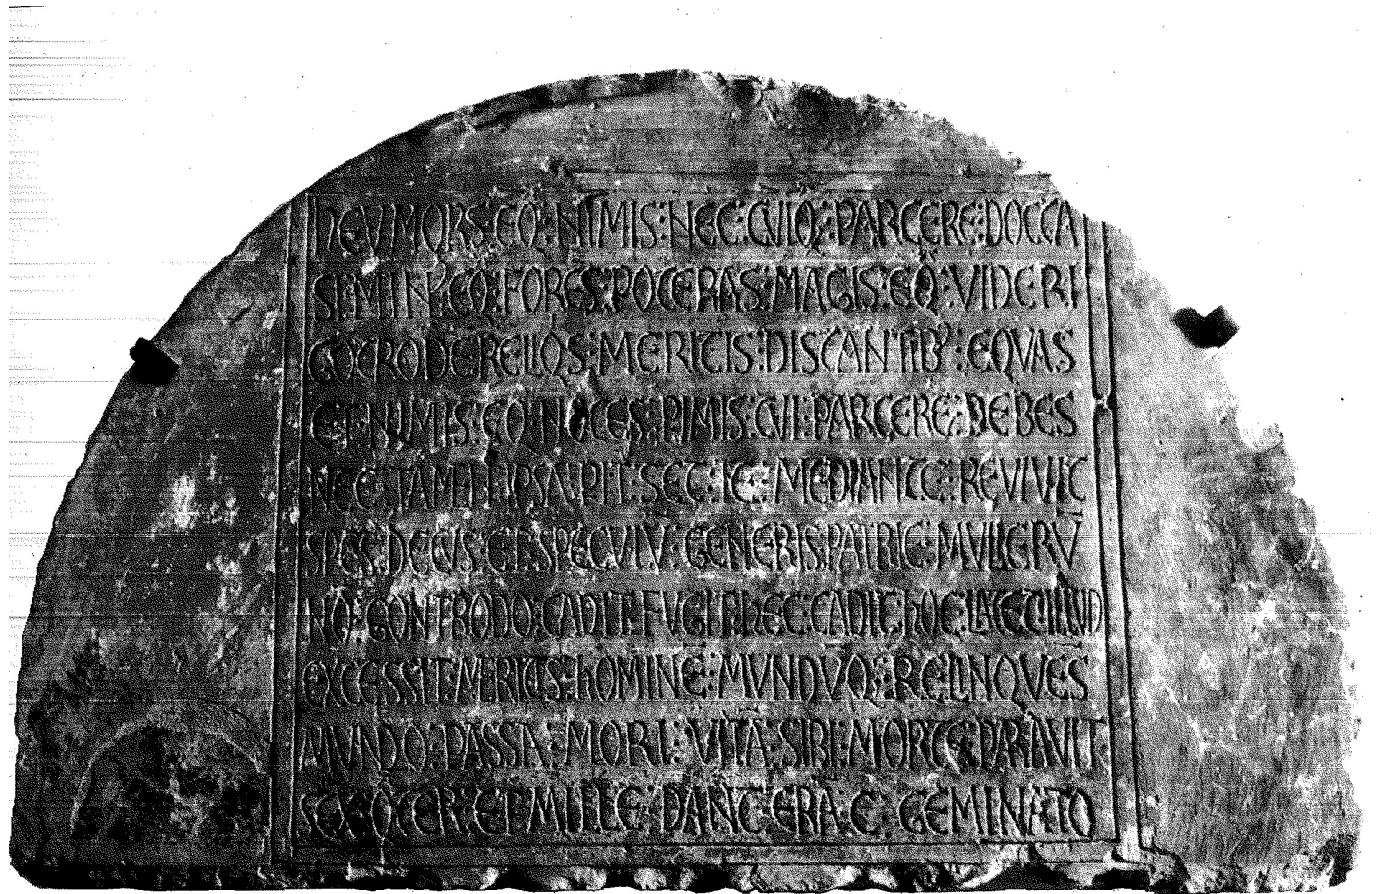 HEU MORS EQ: NIMIS: NEC: CUIQ: PARCERE: DOCTA
SI: MIN': EQ: FORES: POTERAS: MAGIS: EQ: VIDERI
MERITIS: DISTANTIB': EQUAS
ET: NIMIS: EQ: NOCES: PIMIS: CUI: PARCERE: DEBES
NEC: TAMEN: IPSA: PIT: SET: MEDIANTE: REVIVIT
SPES: DECUS: ET: SPECULU: GENERIS: PATRIE: MULIERU
NO: CONTRODO: CADIT: FUGIT: HEC: CADIT: HOC: IACET: ILLUD
EXCESSIT: MERITIS: HOMINE: MUNDUQ: RELINQUES
MUNDO: PASSA: MORI: VITA: SIBI: MORTE: PARAVIT
SEX: QTER: ET MILLE: DANT: ERA: C: GEMINATO